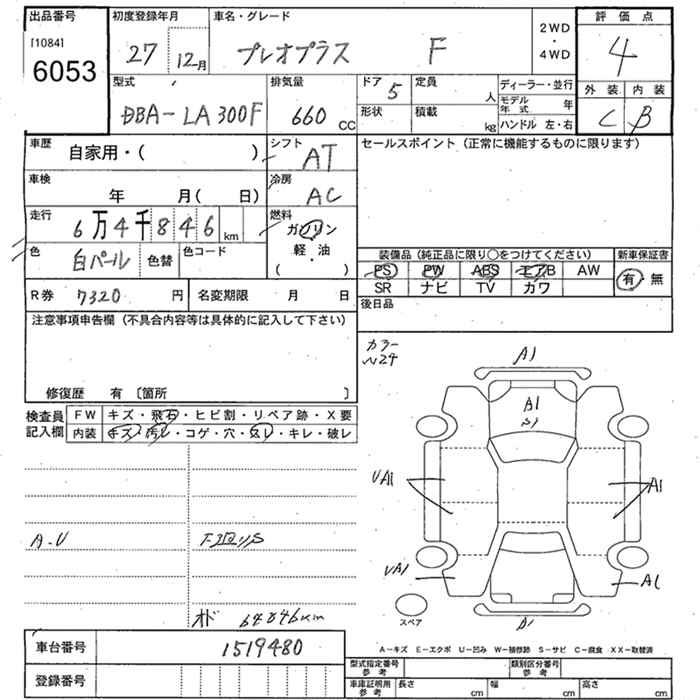 出品番号 初度登録年月 車名・グレード 評価点
[1084] 6053 27 12月 プレオプラス F 2WD・4WD 4
型式 排気量 ドア 5 定員 人 ディーラー・並行 外装 内装
DBA-LA300F 660 CC 形状 積載 kg モデル年式 年 C B
ハンドル 左・右
車歴 自家用・( ) シフト AT セールスポイント (正常に機能するものに限ります)
車検 年 月( 日) 冷房 AC
走行 6万4千846 km 燃料 ガソリン 軽・油 ( )
色 白パール 色替 色コード 装備品 (純正品に限り○をつけてください) 新車保証書
PS PW ABS エアB AW 有・無
R券 7320 円 名変期限 月 日 SR ナビ TV カワ
後日品
注意事項申告欄 (不具合内容等は具体的に記入して下さい)
カラー
N24
修復歴 有 〔箇所 〕
検査員記入欄 FW キズ・飛石・ヒビ割・リペア跡・X要
内装 キズ・汚レ・コゲ・穴・スレ・キレ・破レ
A1
A1
UA1 A1
A・U
UA1 A1
A1
スペア
オド 64846km
車台番号 1519480
A-キズ E-エクボ U-凹み W-補修跡 S-サビ C-腐食 XX-取替済
登録番号 型式指定番号 参考 類別区分番号 参考
車庫証明用 参考 長さ cm 幅 cm 高さ cm